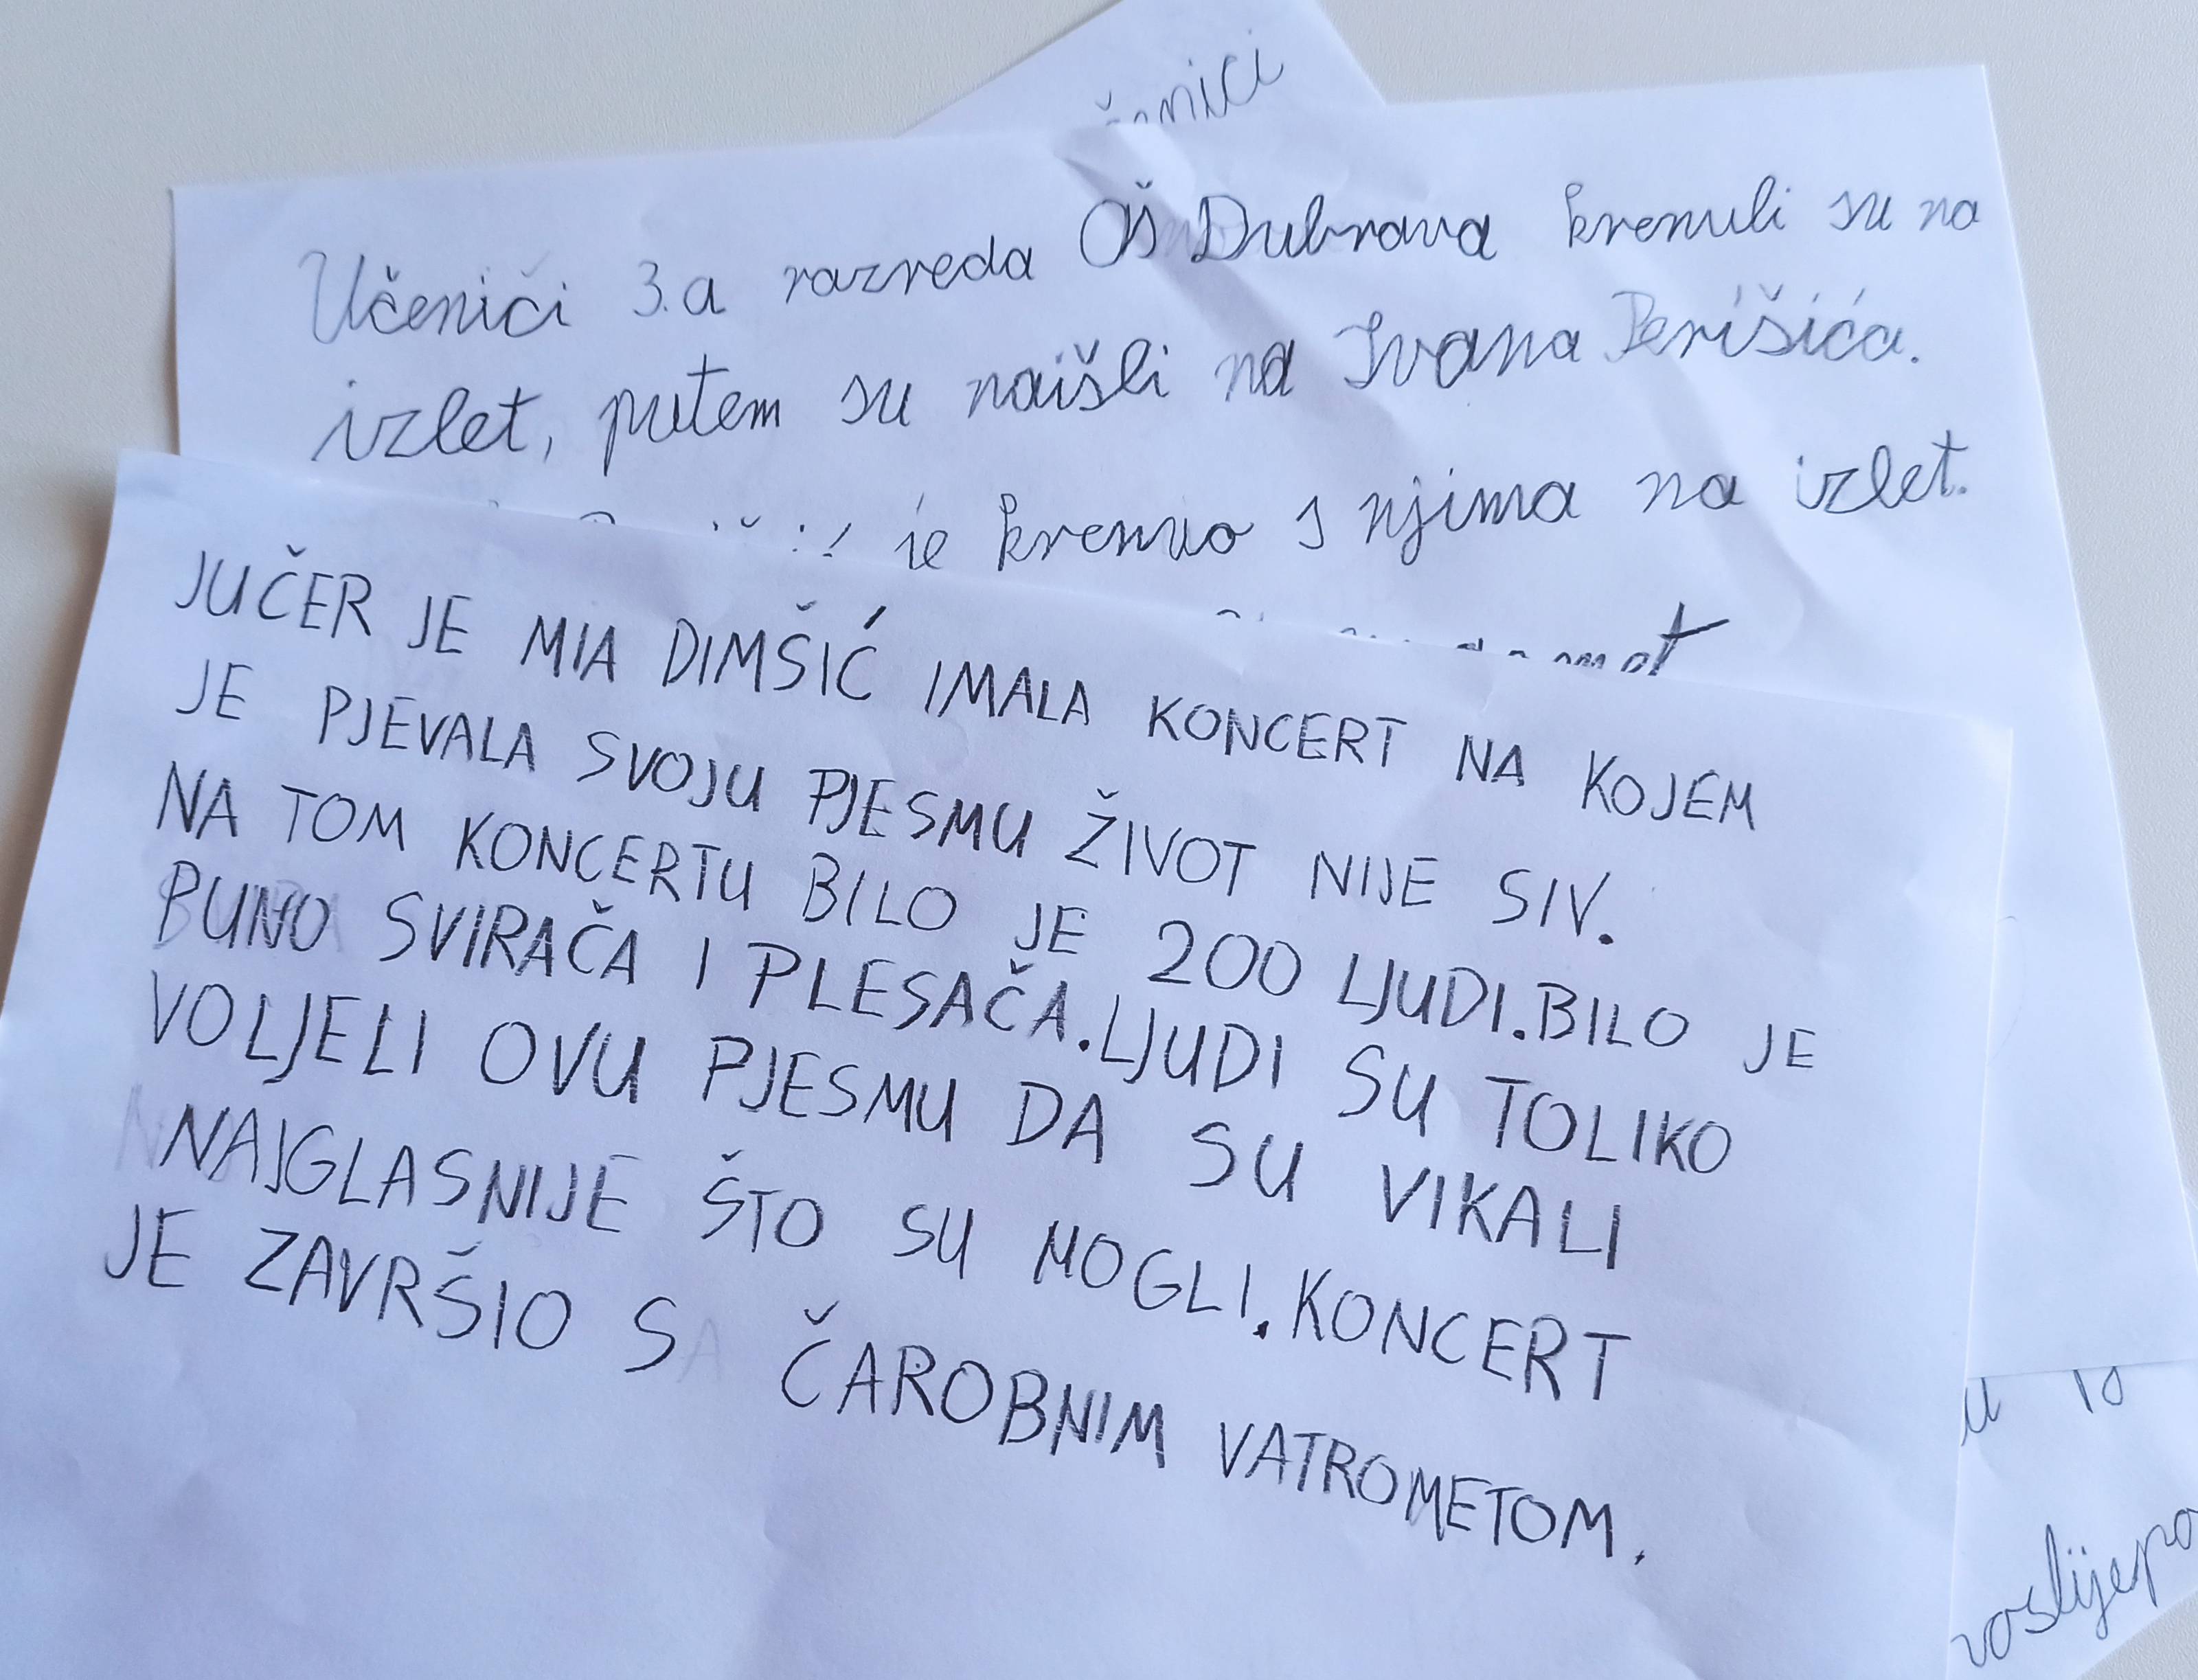 Učenici 3.a razreda OŠ Dubrava krenuli su na
izlet, putem su naišli na Ivana Perišića.
je krenuo s njima na izlet.
JUČER JE MIA DIMŠIĆ IMALA KONCERT NA KOJEM
JE PJEVALA SVOJU PJESMU ŽIVOT NIJE SIV.
NA TOM KONCERTU BILO JE 200 LJUDI. BILO JE
PUNO SVIRAČA I PLESAČA. LJUDI SU TOLIKO
VOLJELI OVU PJESMU DA SU VIKALI
NAJGLASNIJE ŠTO SU MOGLI. KONCERT
JE ZAVRŠIO S ČAROBNIM VATROMETOM.